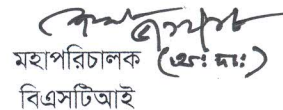 মহাপরিচালক (অঃ দাঃ)
বিএসটিআই